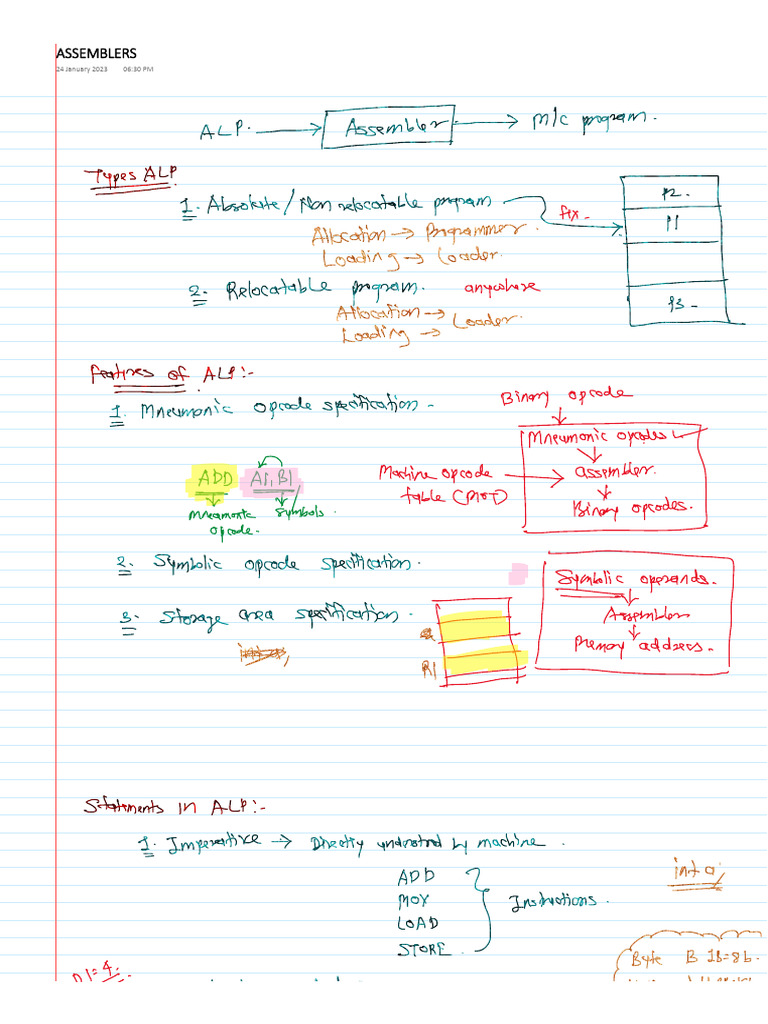 ASSEMBLERS
24 January 2023 06:30 PM
ALP. Assembler M/c program.
Types ALP
1. Absolute / Non relocatable program
fix.
P2.
P1
P3
Allocation → Programmer.
Loading → Loader.
2. Relocatable program. anywhere
Allocation →
Loading → Loader.
Features of ALP:-
1. Mneumonic opcode specification.
Binary opcode
Mneumonic opcodes
assembler.
Binary opcodes.
Machine opcode
table (MOT)
ADD A1, B1
Mneumonic Symbols.
opcode.
2. Symbolic opcode specification.
Symbolic operands.
Assembler
Memory address.
3. Storage area specification.
R1
Statements in ALP:-
1. Imperative → Directly understood by machine.
ADD
MOV
LOAD
STORE
Instructions.
int a;
Byte B 1B=8b.